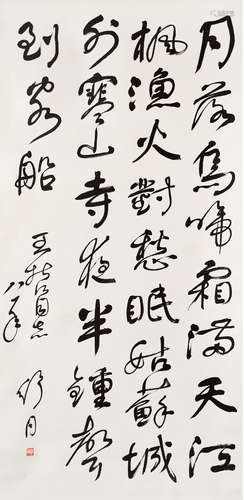 月落烏啼霜滿天江
楓漁火對愁眠姑蘇城
外寒山寺夜半鐘聲
到客船
同志
八一年